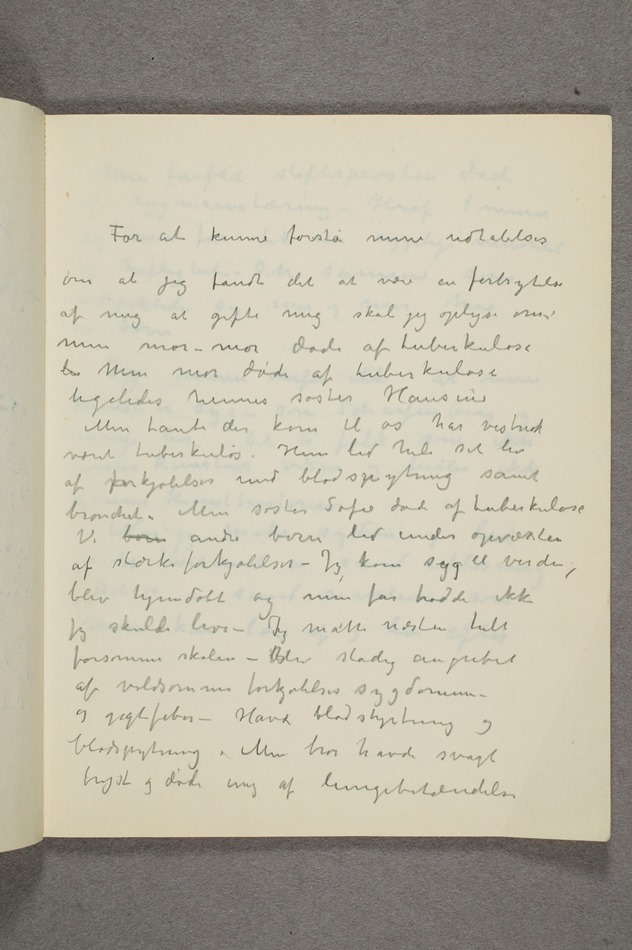 For at kunne forstå mine udtalelser
om at jeg fandt det at være en forbrytelse
af mig at gifte mig skal jeg oplyse om:
min mor-mor døde af tuberkulose
Min mor døde af tuberkulose
ligeledes hennes søster Hansine
Min tante der kom til os har vistnok
været tuberkuløs. Hun led hele sit liv
af forkjølelser med blodspytning samt
bronchit. Min søster Sofie døde af tuberkulose
Vi børn andre børn led under opvæksten
af stærke forkjølelser – Jeg kom syg til verden,
blev hjemdøbt og min far trodde ikke
jeg skulde leve – Jeg måtte næsten helt
forsømme skolen – Blev stadig angrebet
af voldsomme forkjølelses sygdomme –
og gigtfeber – Havde blodstyrtning og
blodspytning. Min bror havde svagt
bryst og døde ung af lungebetændelse